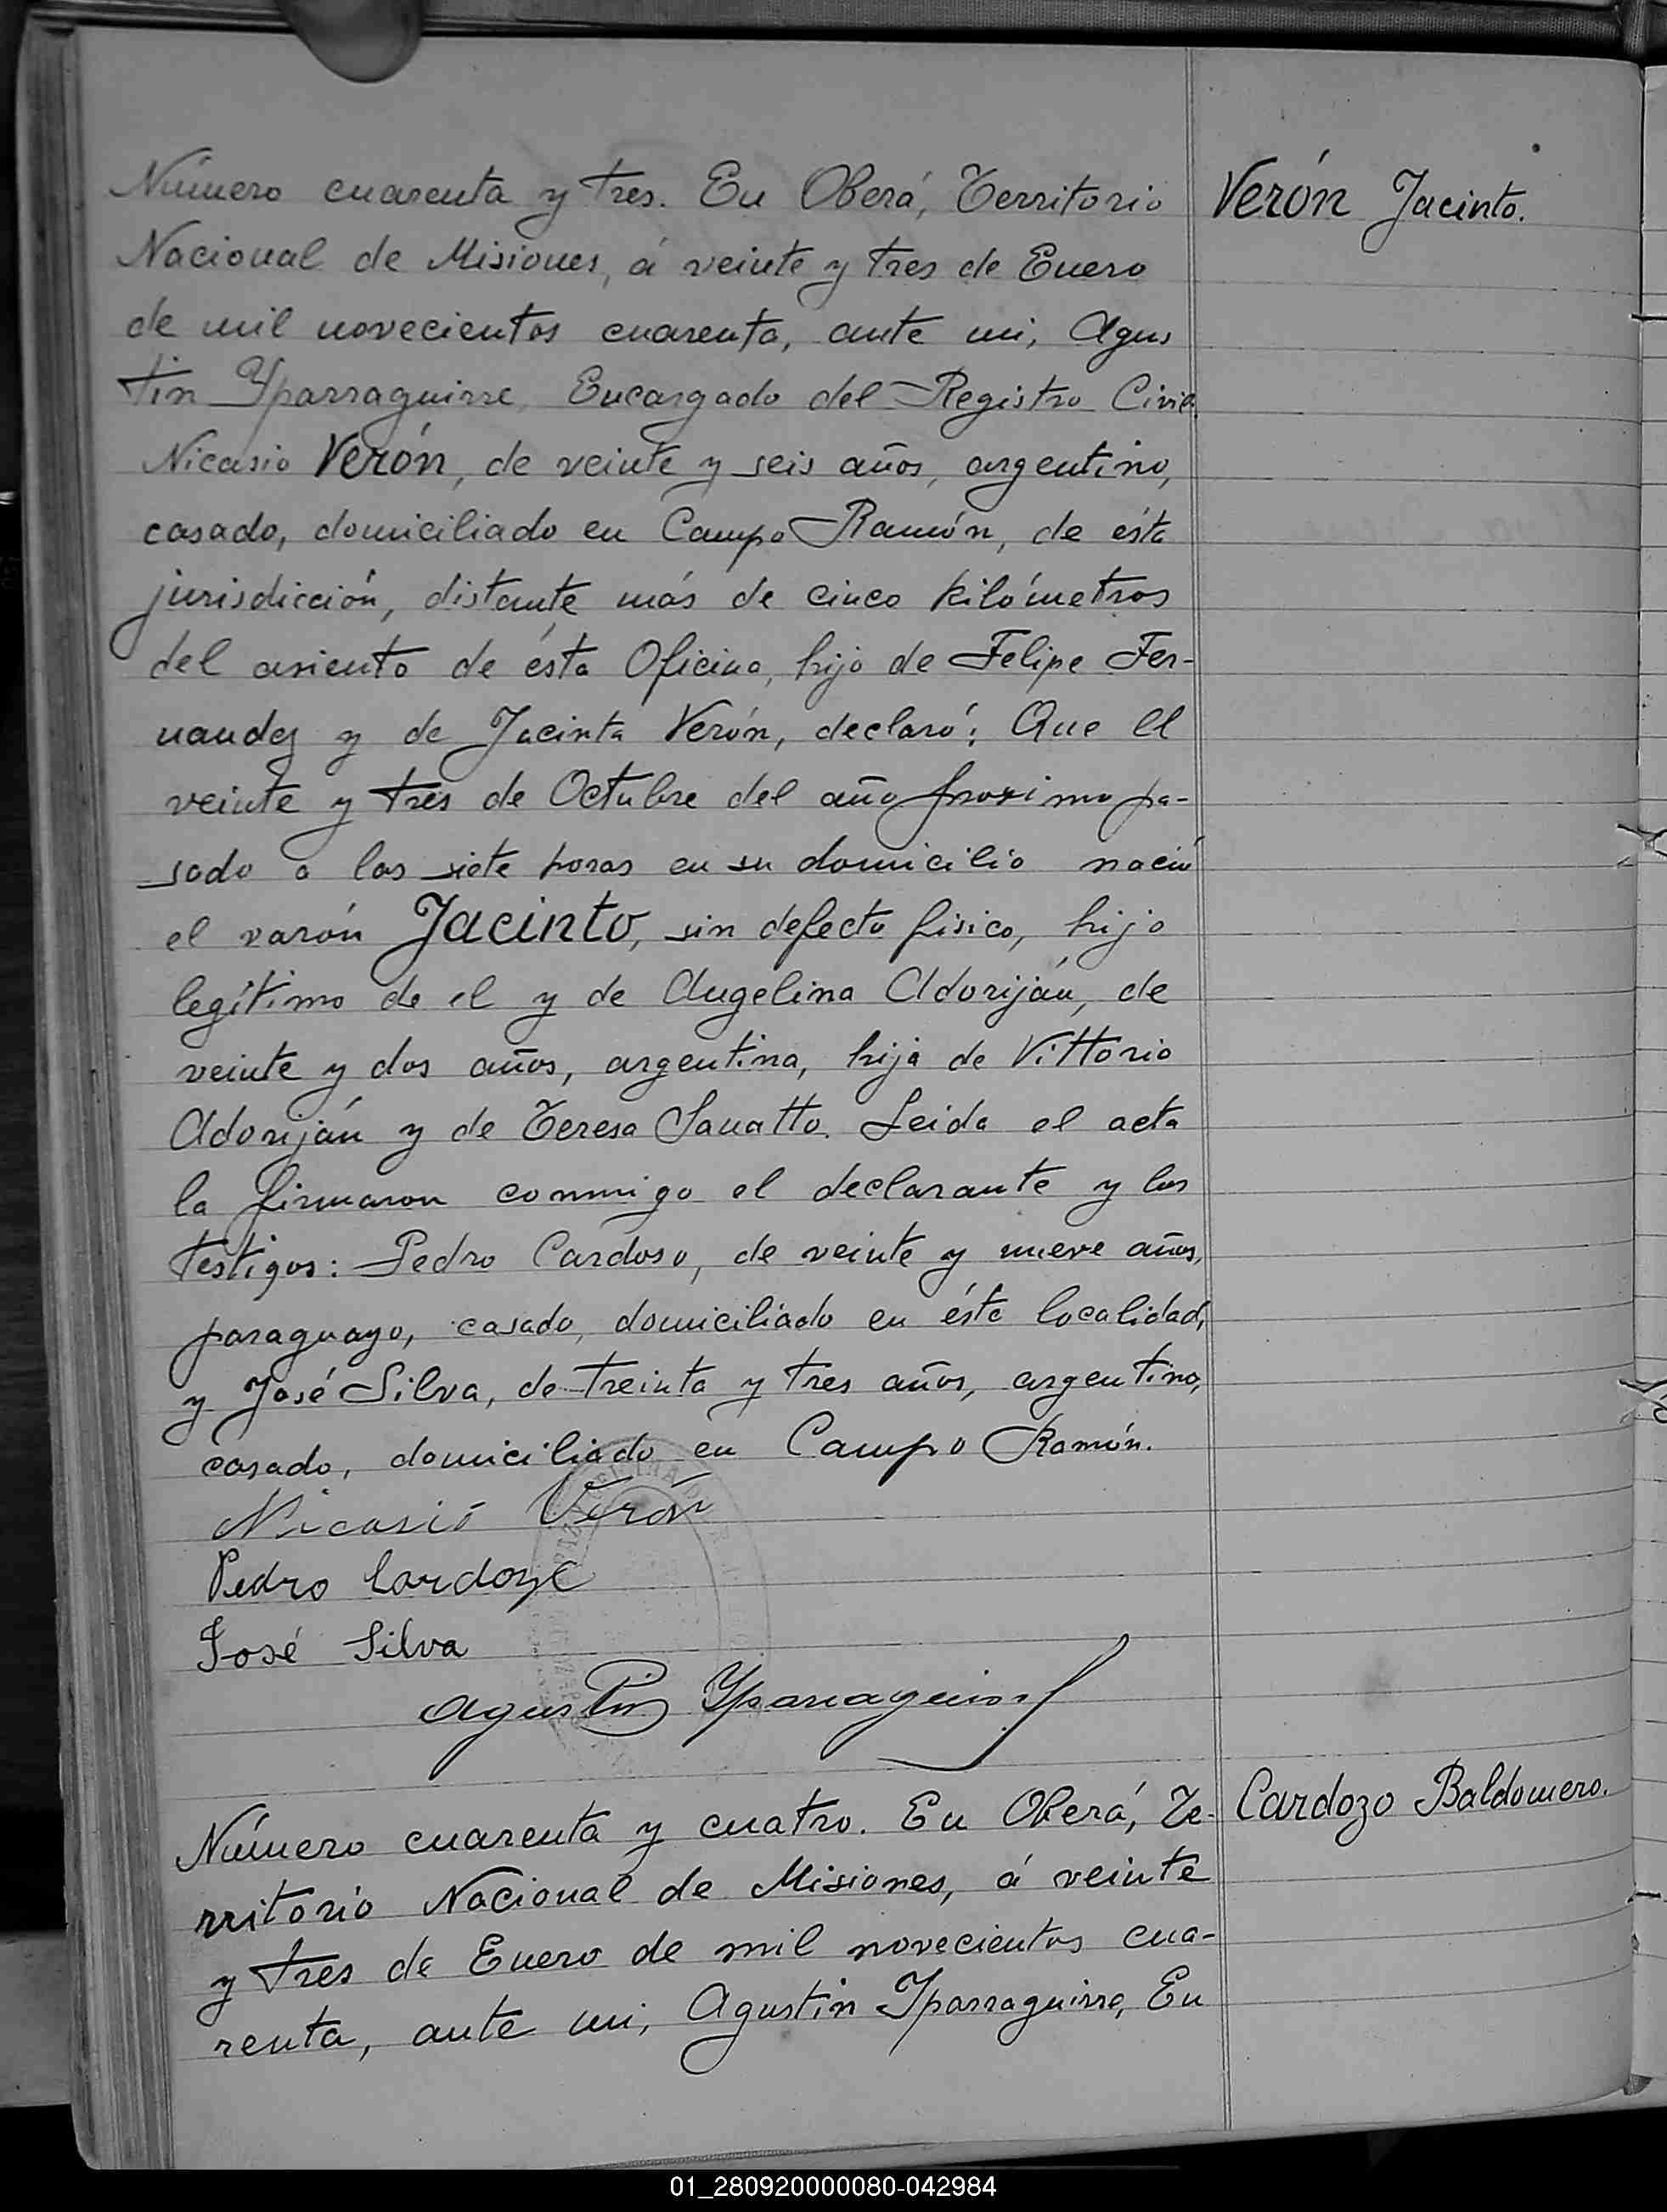 Número cuarenta y tres. En Oberá, Territorio
Verón Jacinto.
Nacional de Misiones, á veinte y tres de Enero
de mil novecientos cuarenta, ante mi, Agus
tin Yparraguirre, Encargado del Registro Civil
Nicasio Verón, de veinte y seis años, argentino,
casado, domiciliado en Campo Ramón, de ésta
jurisdicción, distante más de cinco kilómetros
del asiento de ésta Oficina, hijo de Felipe Fer-
nandez y de Jacinta Verón, declaró: Que el
veinte y tres de Octubre del año proximo pa-
sado a las siete horas en su domicilio nació
el varón Jacinto, sin defecto fisico, hijo
legítimo de el y de Angelina Adoriján, de
veinte y dos años, argentina, hija de Vittorio
Adoriján y de Teresa Sanatto. Leida el acta
la firmaron conmigo el declarante y los
testigos: Pedro Cardoso, de veinte y nueve años,
paraguayo, casado, domiciliado en ésta localidad,
y José Silva, de treinta y tres años, argentino,
casado, domiciliado en Campo Ramón.
Nicasio Verón
Pedro Cardozo
José Silva
Agustin Yparraguirre
Número cuarenta y cuatro. En Oberá, Te-
Cardozo Baldomero.
rritorio Nacional de Misiones, á veinte
y tres de Enero de mil novecientos cua-
renta, ante mi, Agustin Yparraguirre, En
01_280920000080-042984